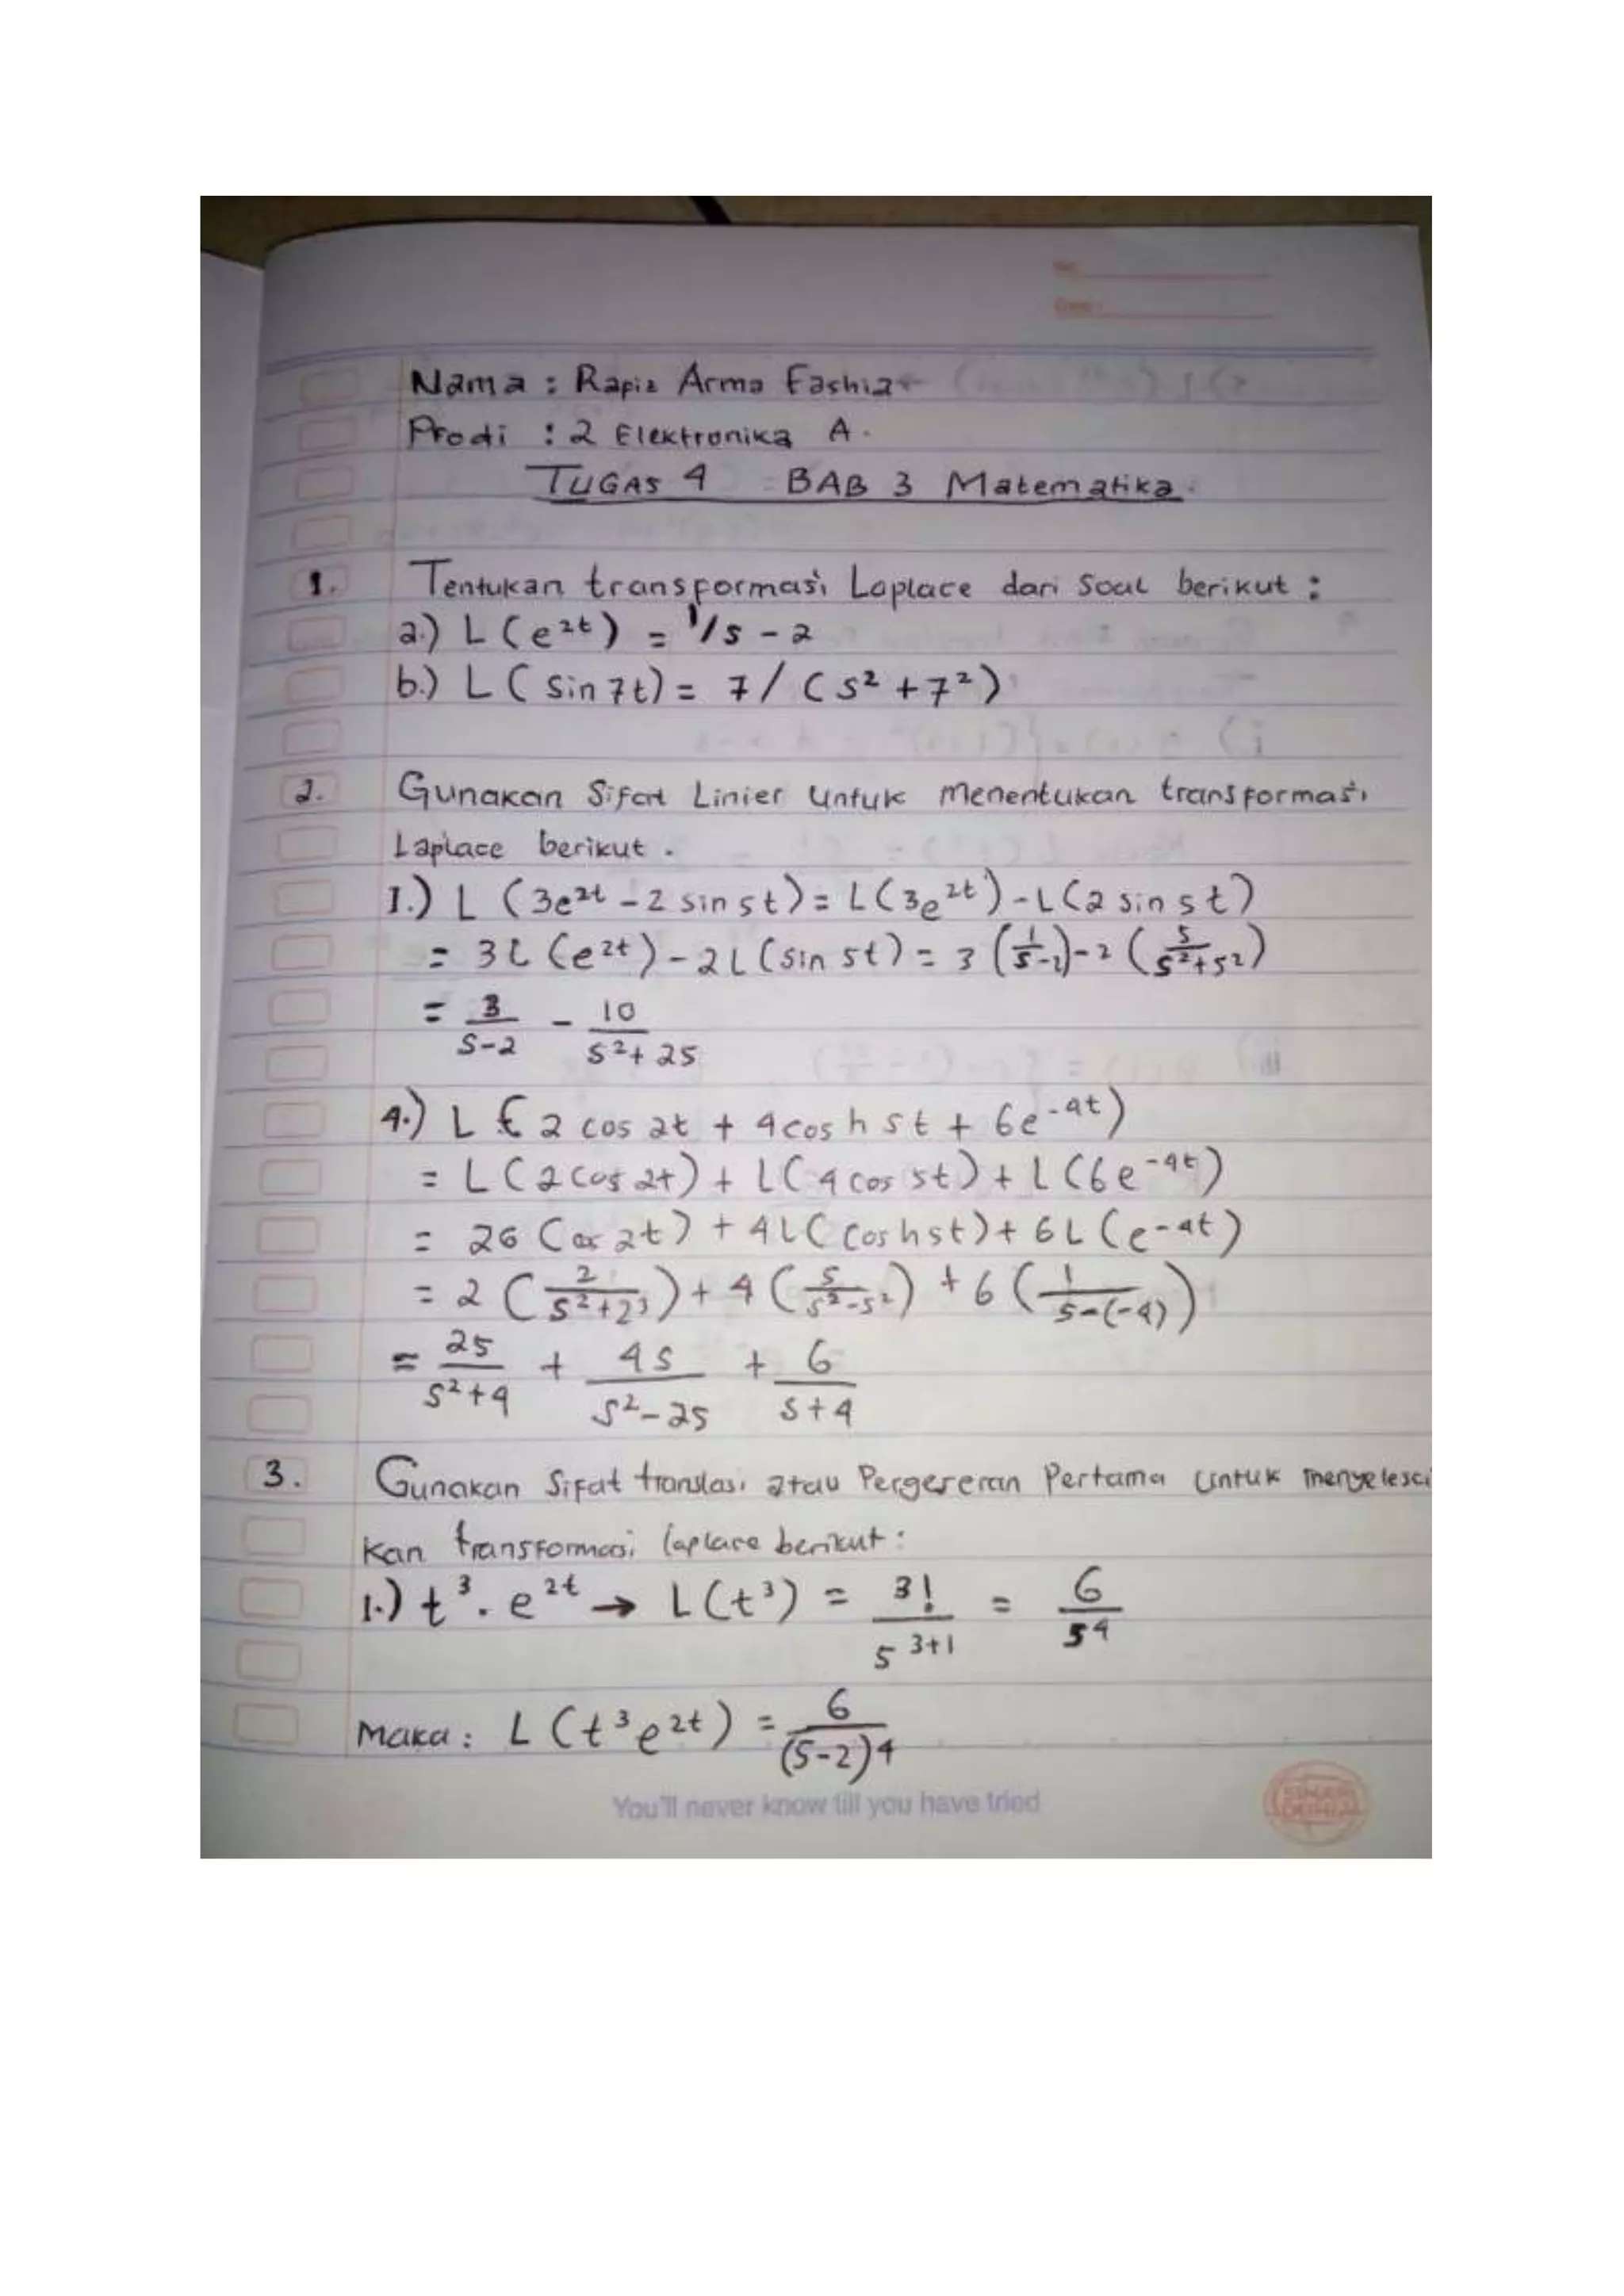 Nama : Rapiz Arma Fashia
Prodi : 2 Elektronika A.
TUGAS 4 BAB 3 Matematika.
1. Tentukan transformasi Laplace dari Soal berikut :
a.) L(e^2t) = 1/s - 2
b.) L(sin 7t) = 7/(s² + 7²)
2. Gunakan Sifat Linier Untuk Menentukan transformasi
Laplace berikut .
1.) L (3e^2t - 2 sin 5t) = L(3e^2t) - L(2 sin 5t)
= 3L(e^2t) - 2L(sin 5t) = 3(1/s-2) - 2(5/s²+5²)
= 3/s-2 - 10/s²+25
4.) L (2 cos 2t + 4 cos h 5t + 6e^-4t)
= L(2 cos 2t) + L(4 cos 5t) + L(6e^-4t)
= 26 (cos 2t) + 4L(cos h 5t) + 6L(e^-4t)
= 2(2/s²+2³) + 4(s/s²-5²) + 6(1/s-(-4))
= 2s/s²+4 + 4s/s²-25 + 6/s+4
3. Gunakan Sifat translasi atau Pergeseran Pertama Untuk menyelesai
kan transformasi laplace berikut :
1.) t³ . e^2t → L(t³) = 3!/s^3+1 = 6/s⁴
Maka : L(t³e^2t) = 6/(s-2)⁴
You'll never know till you have tried